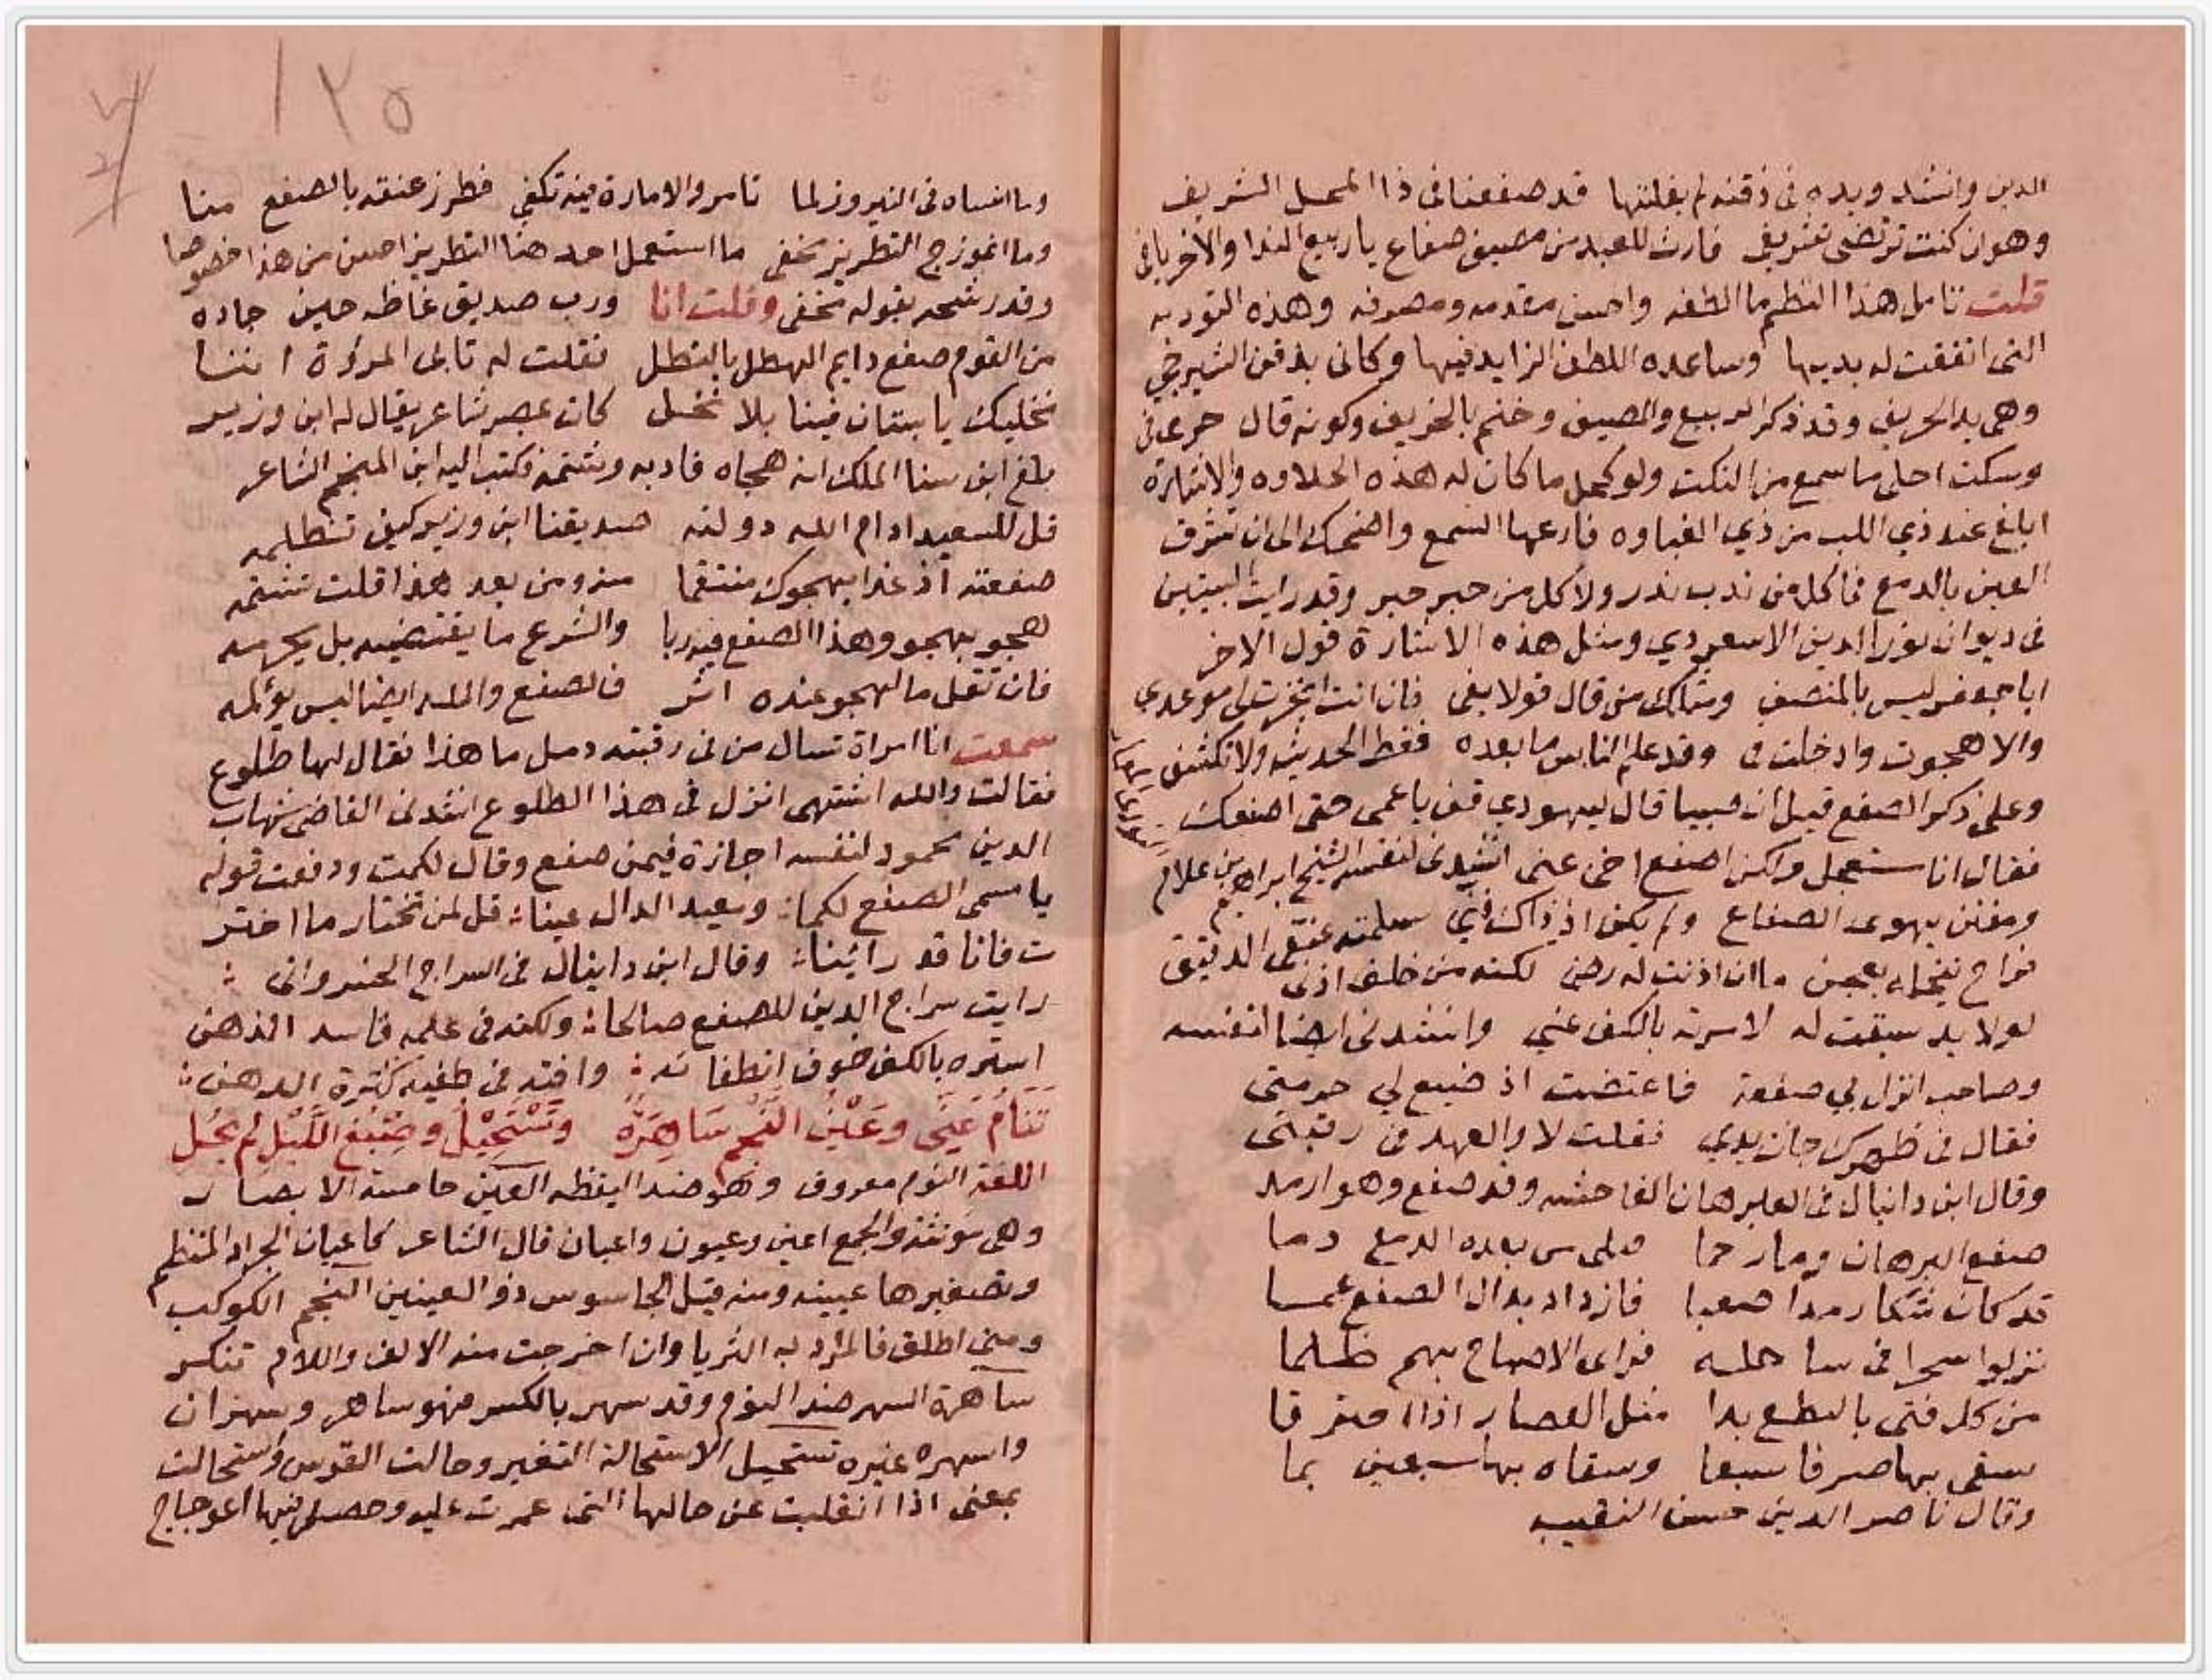 الدين وانشد ويده في ذقنه لم يفلتها قد صفعنا في ذا المحل الشريف
وهو ان كنت ترتضي تشريفي فارث للعبد من مصيف صفاع يا ربيع الندا والا خر يافي
قلت تامل هذا النظم ما الطفه واحسن مقدمه ومصرفه وهذه التوريه
التي اتفقت له بديها وساعده اللطف الزايد فيها وكاني بذقن الشيرجي
وهي بيد الحريف وقد ذكر الربيع والمصيف وختم بالخريف وكونه قال خر يا في
وسكت احلى ما سمع من النكت ولو كمل ما كان له هذه الحلاوه والاشارة
ابلغ عند ذي اللب من ذي الغباوه فارعها السمع واضحك الى ان تشرق
العين بالدمع فما كل من ندب ندر ولا كل من حبر حبر وقد رايت البيتين
في ديوان نور الدين الاسعردي ومثل هذه الاشارة قول الاخر
ابا جعفر ليس بالمنصف ومثلك من قال قولا يفي فان انت انجزت لي موعدي
والا هجوت وادخلت في وقد علم الناس ما بعده فغط الحديث ولا تكشف
وعلى ذكر الصفع قيل ان صبيا قال ليهودي قف يا عمي حتى اصفعك
فقال انا مستعجل ولكن اصفع اخي عني انشدني لنفسه الشيخ ابراهيم بن غلام
ومفنن يهوى الصفاع ولم يكن اذ ذاك فني سلمته عنقي الدقيق
فراح نيخله بعجن ما ان اذنت له رضى لكنه من خلف اذني
لولا يد سبقت له لامرته بالكف عني وانشدني ايضا لنفسه
وصاحب انزل بي صفعة فاعتضت اذ ضيع لي حرمتي
فقال في ظهرك جات يدي فقلت لا والعهد في رقبتي
وقال ابن دانيال في العلم هان الفاحشه وقد صفع وهو ارمد
صفع البرهان وما رحما فبكى من بعده الدمع دما
قد كان شكا رمدا صعبا فازداد بداك الصفع عما
نزلوا سحرا في ساحله فراى الاصباح بهم ظلما
من كل فتى بالنطع بدا مثل القصار اذا احترقا
سقى بها صرفا سبعا وسقاه بها سبعين بما
وقال ناصر الدين حسن النقيب
١٢٥
وما انساه في النيروز لما تامر والامارة فيه تكفي فطرز عنقه بالصفع منا
وما انموزج التطريز مخفي ما استعمل احد هنا التطريز احسن من هذا خصوصا
وقد رشحه بقوله مخفي وقلت انا ورب صديق غاظه حين جاده
من القوم صفع دايم الهطل بالنطل فقلت له تابى المروة اننا
نخليك يا بستان فينا بلا نخل كان بمصر شاعر يقال له ابن وزير
بلغ ابن سنا الملك انه هجاه فادبه وشتمه فكتب اليه ابن المنجم الشاعر
قل للسعيد ادام الله دولته صديقنا ابن وزير كيف تظلمه
صفعته اذ غدا يهجوك منتقما منه ومن بعد هذا قلت تشتمه
لهجو بهجو وهذا الصفع فيه ربا والشرع ما يقتضيه بل يحرمه
فان تقل ما لهجو عنده اثر فالصفع والله ايضا ليس يؤلمه
سمعت انا امراة تسال من في رقبته دمل ما هذا فقال لها طلوع
فقالت والله اشتهى انزل في هذا الطلوع انشدني القاضي شهاب
الدين محمود لنفسه اجازة فيمن صفع وقال لكمت ودفعت قوله
يا مسمى الصفع لكما: وبعيد الدال عينا: قل لمن تختار ما اختر
ت فانا قد رائينا: وقال ابن دانيال في السراج الحندواني :
رايت سراج الدين للصفع صالحا: ولكنه في علمه فاسد الذهن
استره بالكف خوف انطفائه: وافته في طفيه كثرة الدهن:
تَنَامُ عَيْنِي وعَيْنُ النَّجْمِ سَاهِرَةٌ وتَسْتَحِيْلُ وصِبْغُ اللَّيْلِ لم يَحُلِ
اللغة النوم معروف وهو ضد اليقظه العين حاسة الابصار
وهي مونثة والجمع اعين وعيون واعيان قال الشاعر كاعيان الجراد المنظم
وتصغيرها عيينه ومنه قيل للجاسوس ذو العينين النجم الكوكب
ومتى اطلق فالمراد به الثريا وان اخرجت منه الالف واللام تنكر
ساهرة السهر ضد النوم وقد سهر بالكسر فهو ساهر وسهران
واسهره غيره تستحيل الاستحالة التغير وحالت القوس واستحالت
بمعنى اذا انقلبت عن حالها التي عمرت عليه وحصل فيها اعوجاج